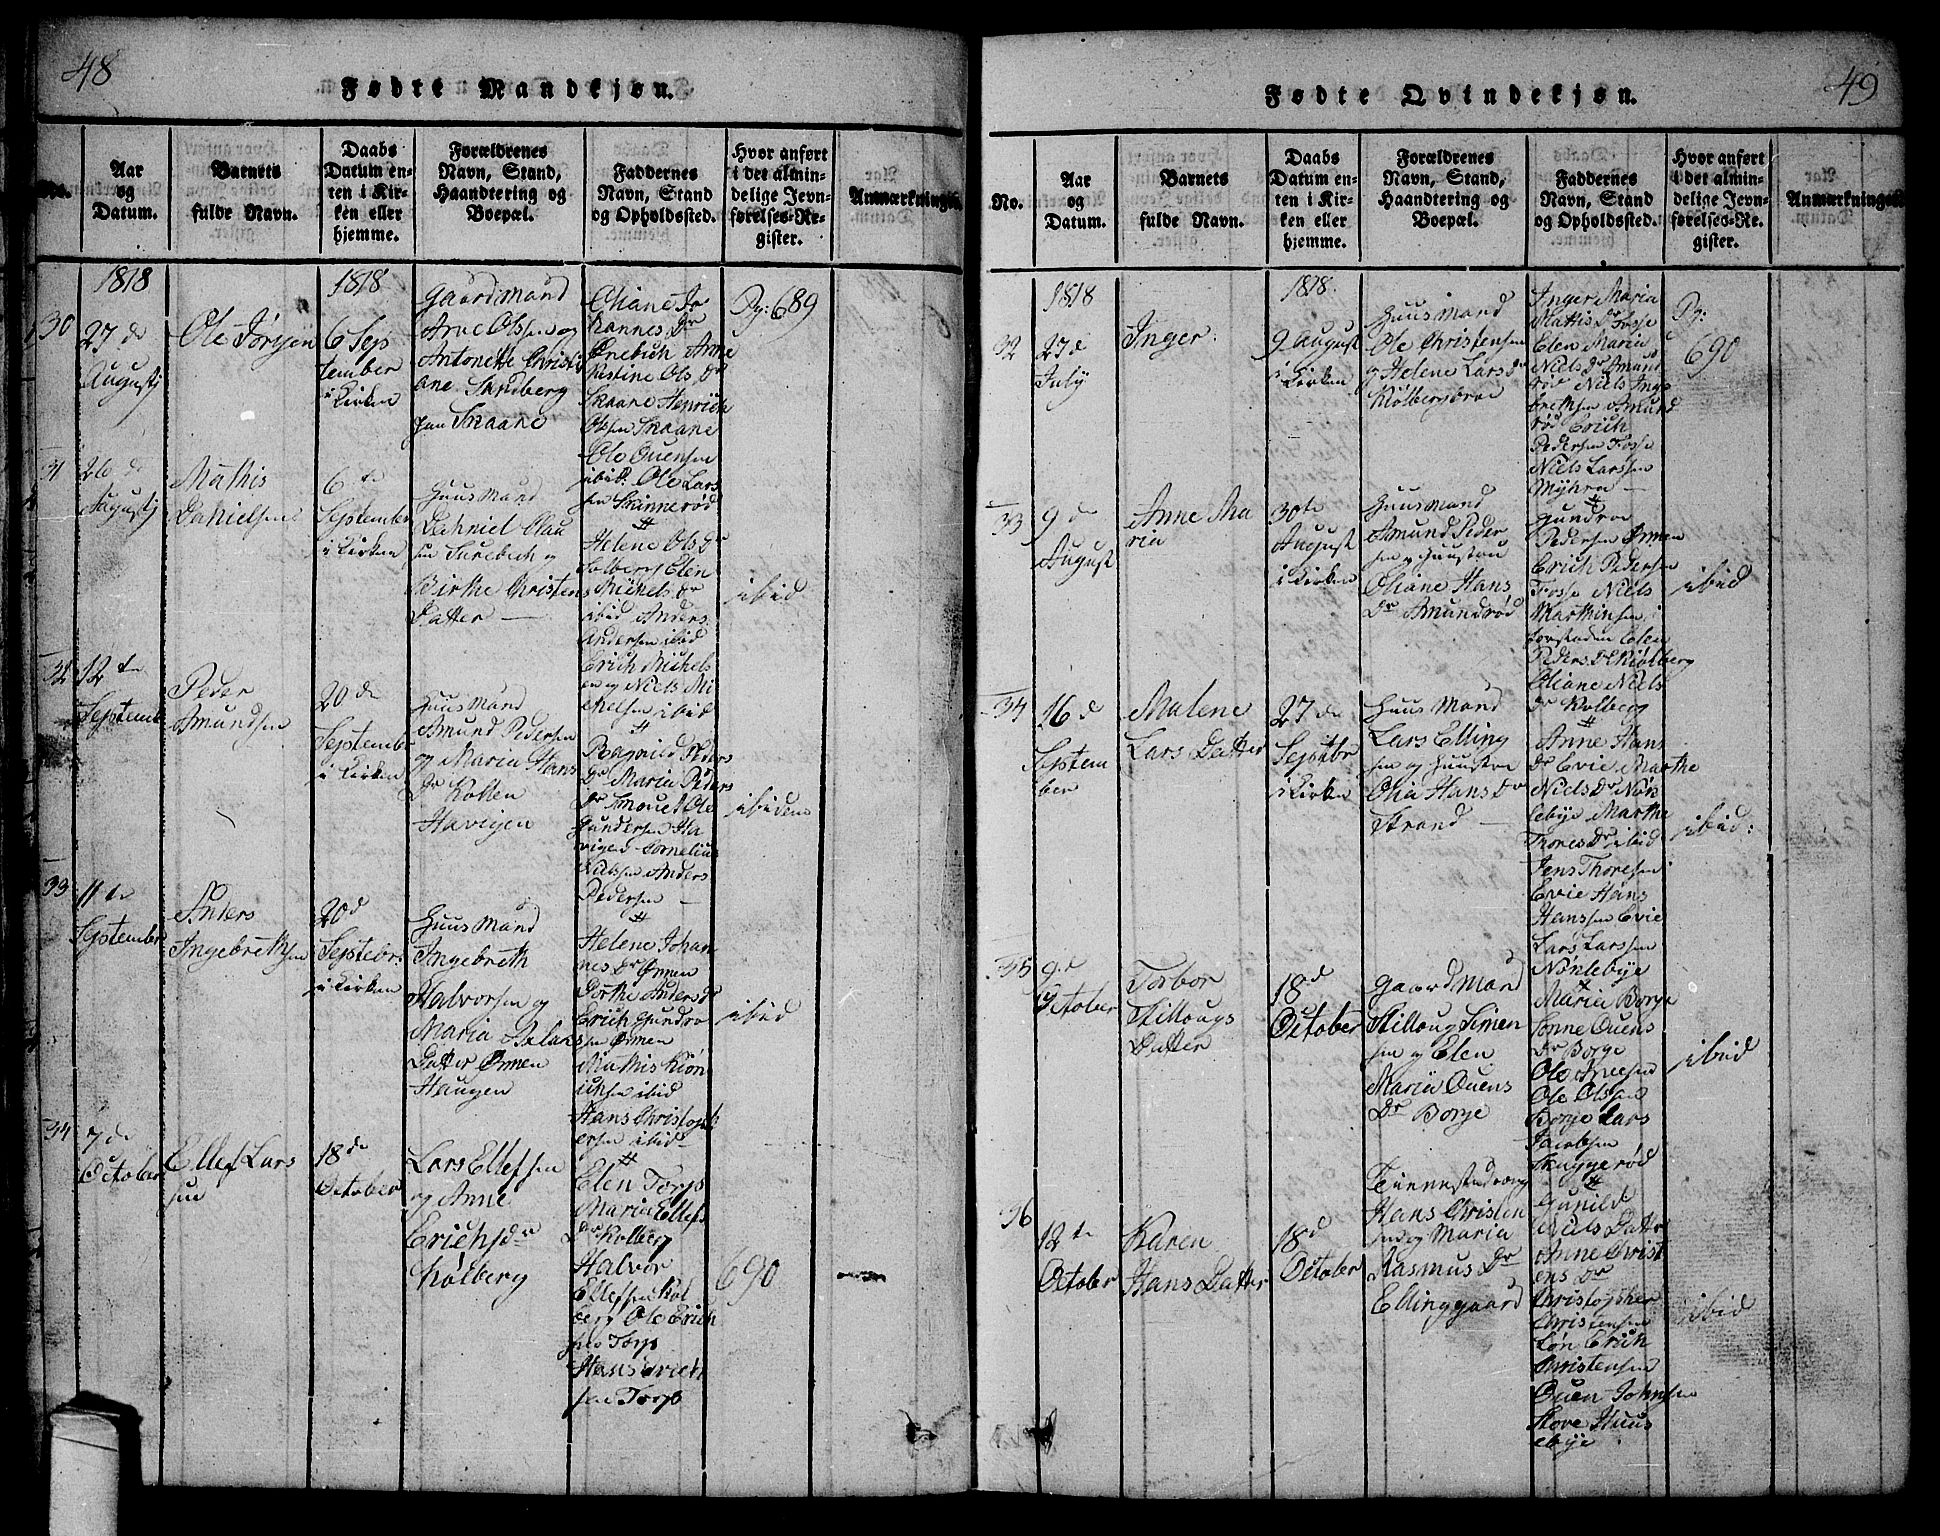 48
Fødte Mandkjøn.
No.
Aar
og
Datum.
Barnets
fulde Navn.
Daabs
Datum en-
ten i Kir-
ken eller
hjemme.
Forældrenes
Navn, Stand,
Haandtering og
Boepæl.
Faddernes
Navn, Stand
og Opholdssted.
Hvor anført
i det almin-
delige Jevn-
førelses-Re-
gister.
Anmærkninger.
1818
30
27 de
Augustj
Ole Jørgen
1818
6 Sep
tember
i Kirken
Gaardmand
Arne Olssen og
Antonette Christi
ane Sandberg
Skaane
Oliane Jo
hannes Dr
Ønebich Anne
Kistine Ols Dr
Skaane Henrich
Olssen Skaane
Ole Ouensen
ibid. Ole Lars
sen Skinnerød
Pg: 689
31
26 de
Augustj
Mathis
Danielsen
6 te
September
i Kirken
Huusmand
Dahniel Clau
sen Surebech og
Birthe Christens
Datter —
#
Helene Ols Dr
Solberg Elen
Michels Dr
ibid Anders
Andersen ibid
Erich Michels
en og Niels Mi
chelsen ibid
ibid
32
12 te
September
Peder
Amundsen
20 de
September
i Kirken
Huusmand
Amund Pedersen
og Maria Hans
Dr Kolten
Havigen
#
Ragnild Peders
Dr Maria Peders
Dr Smouet Ole
Gundersen Ha
vigen Cornelius
Nilssen Anders
Pedersen —
ibidem
33
11 te
September
Anders
Ingebrethsen
20 d
Septebr.
i Kirken
Huusmand
Ingebreth
Halvorsen og
Maria
Datter Ønnen
Haugen
#
Helene Johan
nes Dr Ønnen
Dorthe Anders d
Erich Gundro
sen Ønnen
Mathis
ibid
Hans Christoph
ersen ibid
ibid
34
7 de
October
Ellef Lars
sen
18 de
October
Lars Ellefsen
og Anne
Erichs dr
Kølberg
#
Elen Torp
Maria Ellefs
Dr Kolberg
Halvor
Ellefsen Kol
berg Ole Erich
sen Torp
Hans Erich
sen Torp
690
49
Fødte Qvindekjøn.
No.
Aar
og
Datum.
Barnets
fulde Navn.
Daabs
Datum en-
ten i Kir-
ken eller
hjemme.
Forældrenes
Navn, Stand,
Haandtering og
Boepæl.
Faddernes
Navn, Stand
og Opholdssted.
Hvor anført
i det almin-
delige Jevn-
førelses-Re-
gister.
Anmærkninger.
1818
32
27 de
July
Inger.
1818.
9 August
i Kirken
Huusmand
Ole Christensen
og Helene Lars Dr
Kiølbergsbroe
Inger Maria
Mattis Dr Fosse
Elen Maria
Niels Dr Amund
rød Niels Inge
brethsen Amund
rød Erich
Pedersen Fosse
Niels Larssen
Myhra —
Pg:
690
33
9 de
August
Anne Ma
ria
30 te
August
i Kirken
Huusmand
Amund Peder
sen og Huustru
Oliane Hans
Dr Amundrød
#
Gundro
Pedersen Ønnen
Erich Pedersen
Fosse Niels
Marthinsen
Elen
Peders Dr Kiølberg
Oliane Niels
Dr Kolberg
ibid
34
16 d
Septem
ber
Malene
Lars Datter
27 de
Septbr
i Kirken
Huusmand
Lars Elling
sen og Huustru
Olia Hans Dr
Strand —
#
Anne Hans
Dr Evie Marthe
Niels Dr Nøn
lebye Marthe
Thores Dr ibid
Jens Thoresen
Evie Hans
Hanssen Evie
Lars Larssen
Nønlebye
ibid:
35
9 d
October
Torbor
Stillougs
Datter
18 d
October
Gaardmand
Stilloug Simen
sen og Elen
Maria Ouens
Dr Borge
Maria Borge
Sonne Ouens
Dr Borge
Ole
Ole Olssen
Borge Lars
Jacobsen
Skuggerød
ibid
36
12 te
October
Karen
Hans Datter
18 d
October
Hans Christen
sen og Maria
Rasmus Dr
Ellinggaard
#
Gunild
Niels Datter
Anne Christ
ens Dr
Christopher
Christensen
Løn Erich
Christensen
Ouen Johnsen
Huus
ebye
ibid